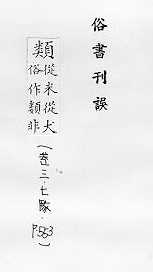 俗書刊誤
類
從米從犬
俗作類非
(卷三·七隊·P.553)